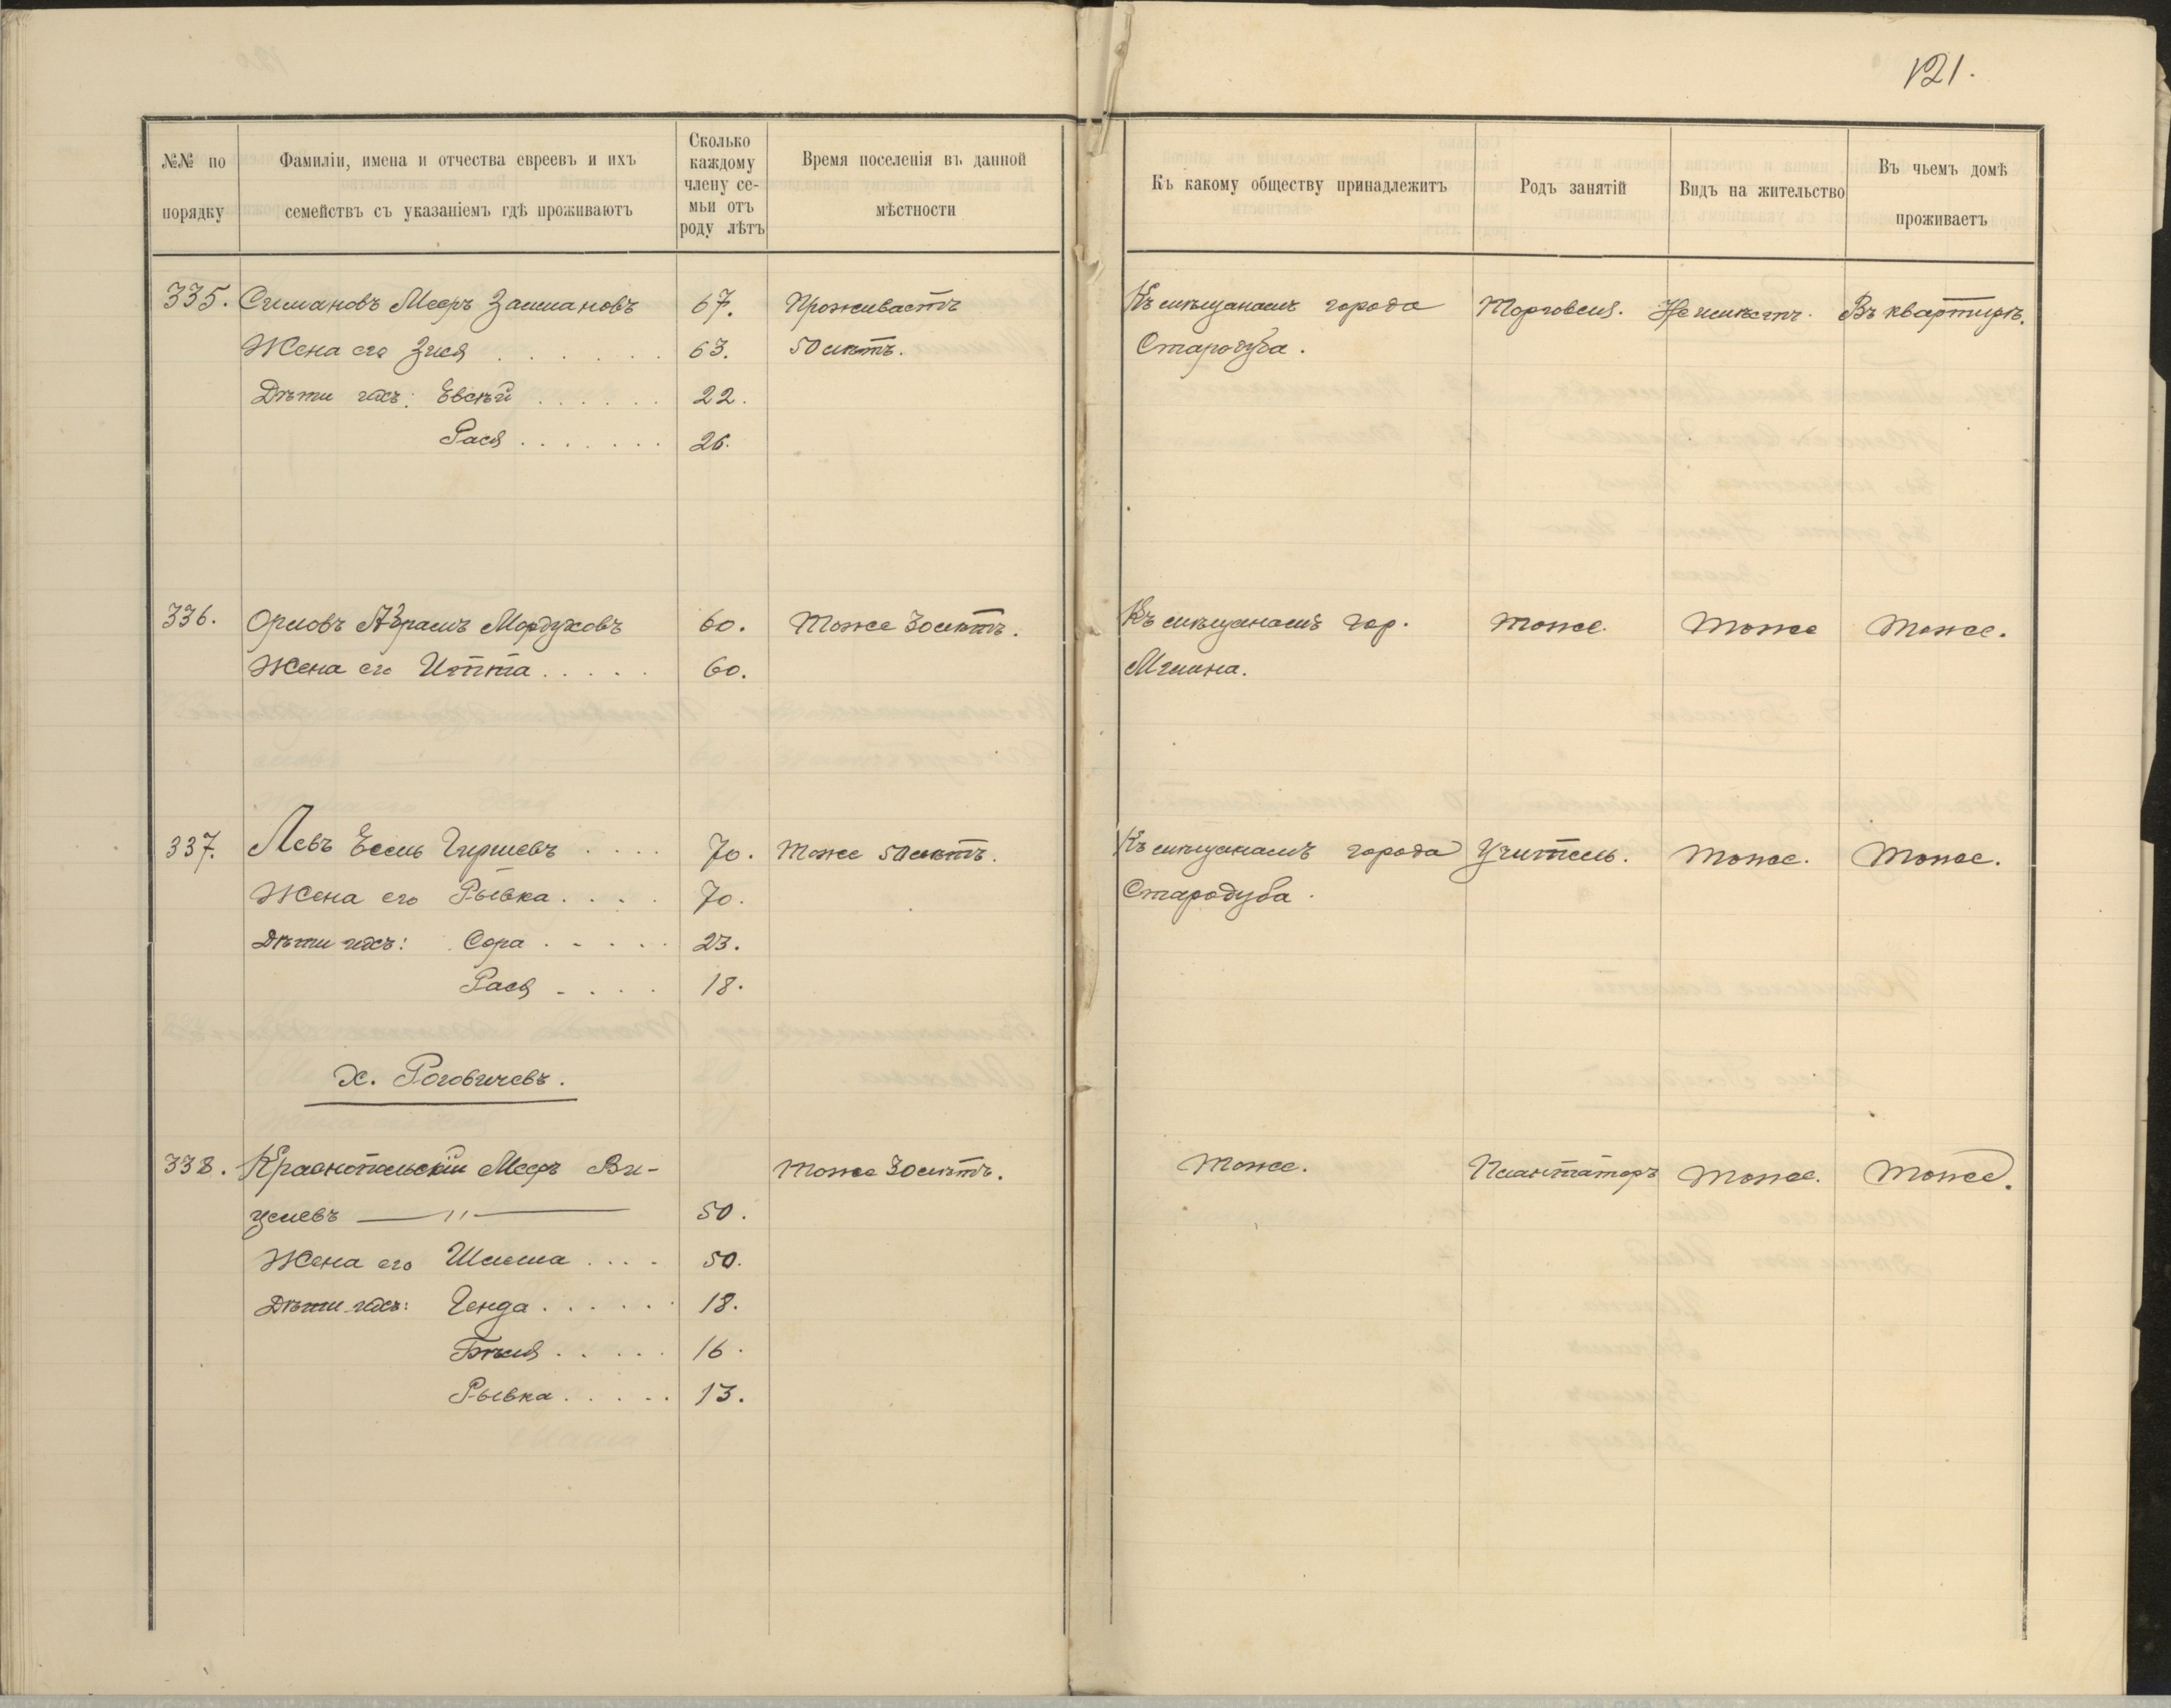 121.
№№ по порядку
Фамиліи, имена и отчества евреевъ и ихъ семействъ съ указаніемъ гдѣ проживаютъ
Сколько каждому члену семьи отъ роду лѣтъ
Время поселенія въ данной мѣстности
Къ какому обществу принадлежитъ
Родъ занятій
Видъ на жительство
Въ чьемъ домѣ проживаетъ
335. Симановъ Мееръ Залмановъ 67. Проживаетъ Къ мѣщанамъ города Торговля. Не имѣетъ. Въ квартирѣ.
Жена его Зися . . . . . . 63. 50 лѣтъ. Стародуба.
Дѣти ихъ: Евсѣй . . . . . . 22.
Рася . . . . . . . 26.
336. Орловъ Абрамъ Мордуховъ 60. Тоже 30 лѣтъ. Къ мѣщанамъ гор. Тоже. Тоже Тоже.
Жена его Итта . . . . . 60. Мглина.
337. Левъ Есель Гиршевъ . . . . 70. Тоже 50 лѣтъ. Къ мѣщанамъ города Учитель. Тоже. Тоже.
Жена его Рывка . . . . 70. Стародуба.
Дѣти ихъ: Сора . . . . . 23.
Рася . . . . 18.
х. Роговичевъ.
338. Краснопольскій Мееръ Ви- Тоже 30 лѣтъ. Тоже. Плантаторъ Тоже. Тоже.
целевъ —— " —— 50.
Жена его Шлема . . . . 50.
Дѣти ихъ: Генда . . . . . . 18.
. . . . . 16.
Рывка . . . . . 13.